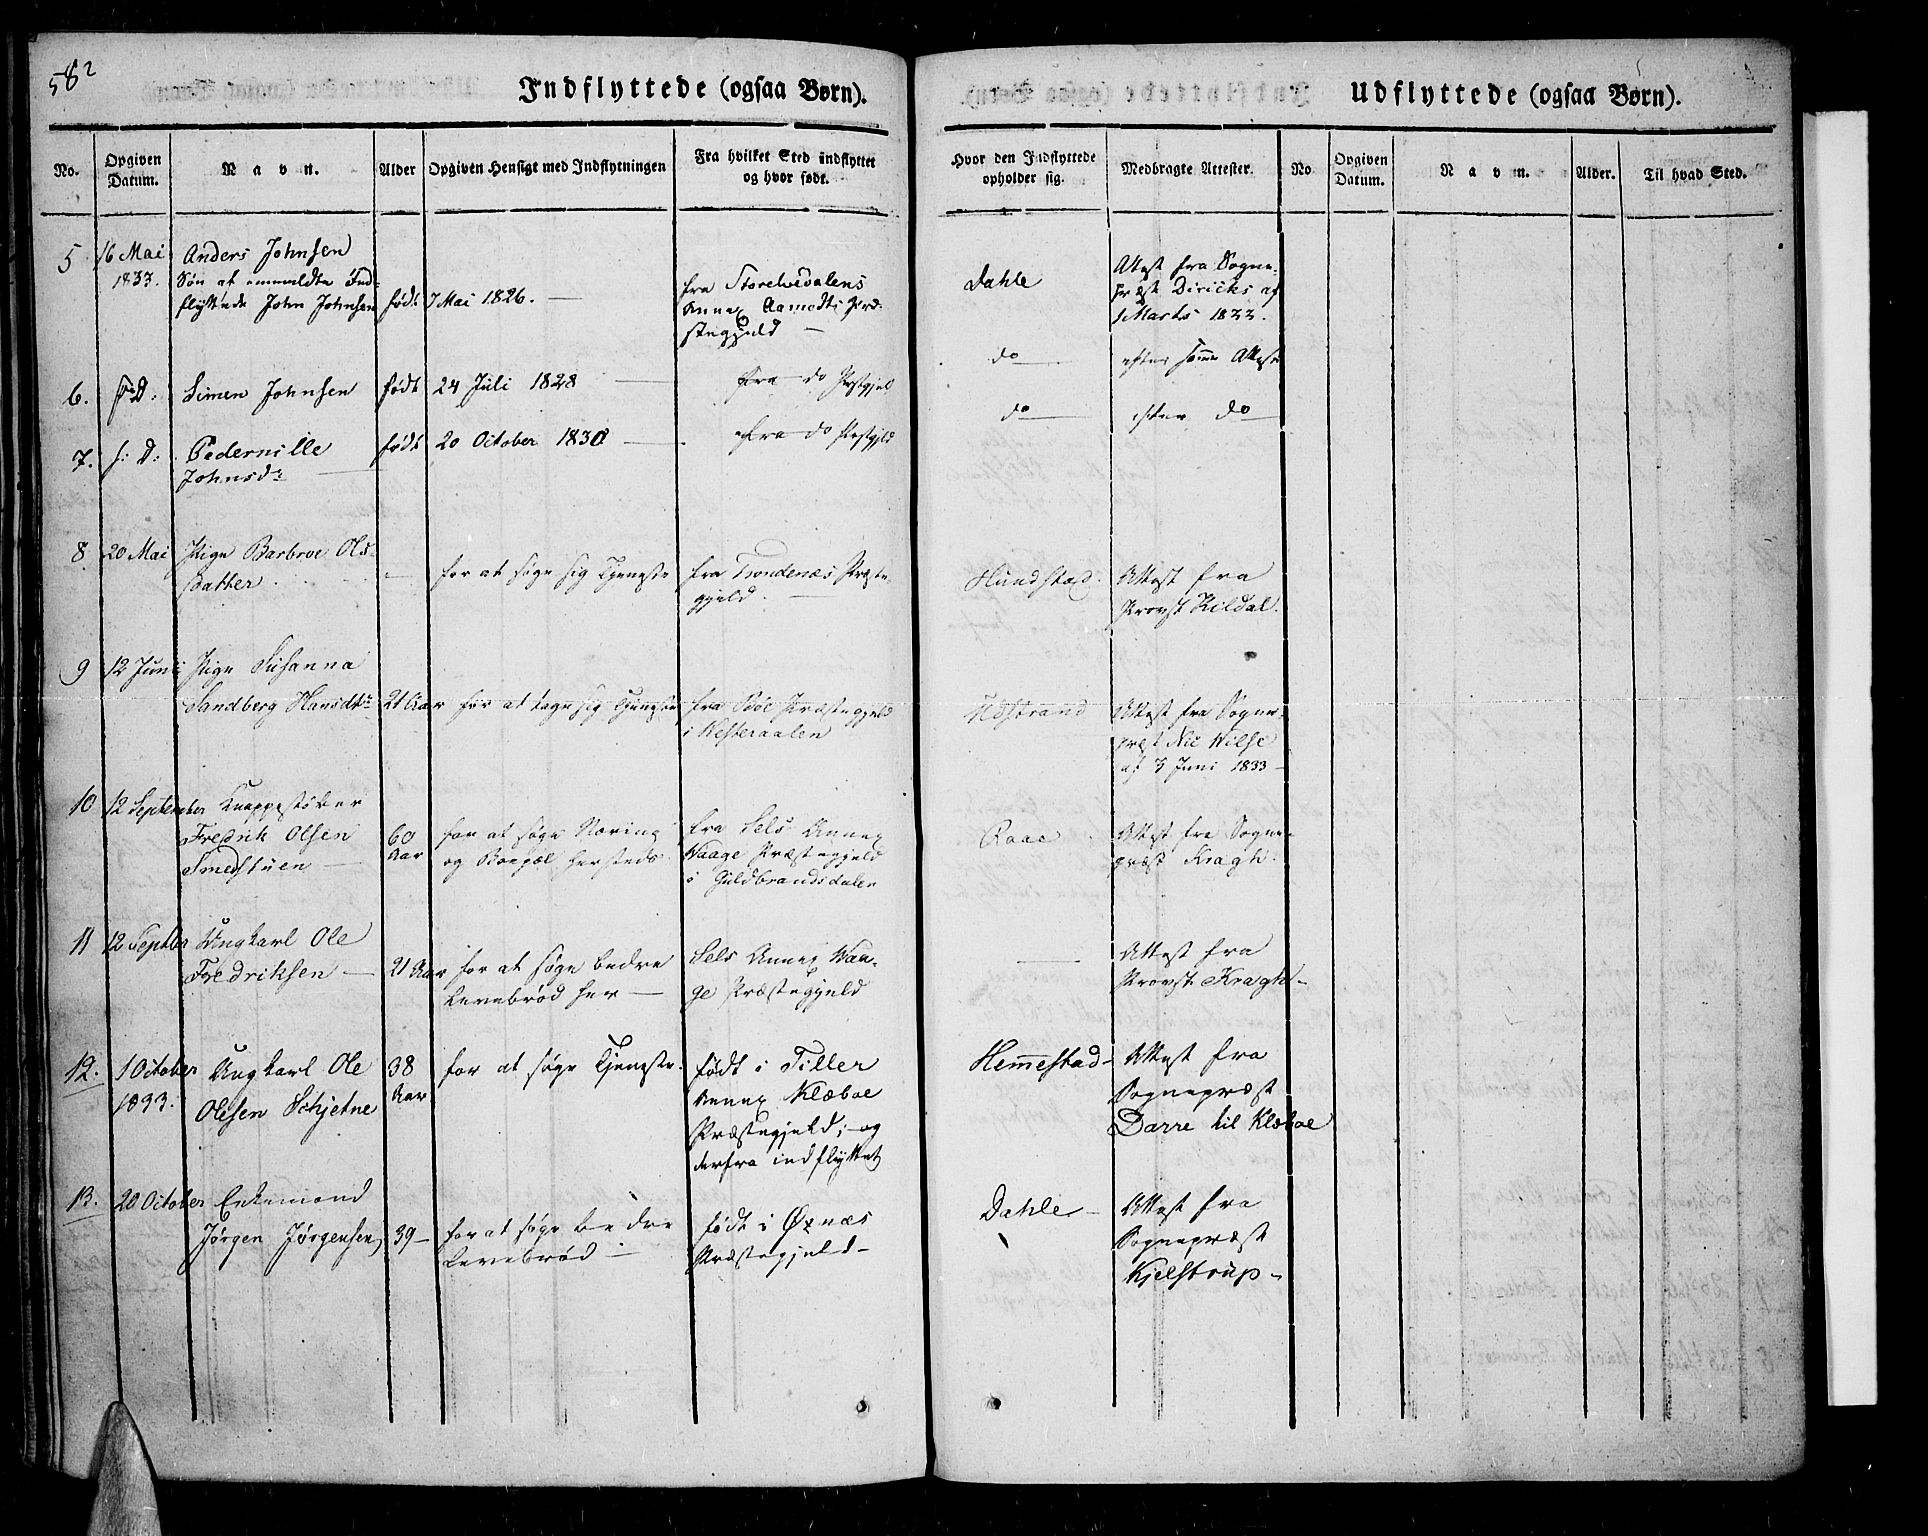 582
Indflyttede (ogsaa Børn).
No.
Opgiven Datum.
Navn.
Alder
Opgiven Hensigt med Indflytningen
Fra hvilket Sted indflyttet og hvor født.
Hvor den Indflyttede opholder sig.
Medbragte Attester.
Udflyttede (ogsaa Børn).
No
Opgiven Datum.
Navn.
Alder.
Til hvad Sted.
5 16 Mai Anders Johnsen
1833. Søn af anmeldte Ind-
flyttede John Johnsen født 7 Mai 1826. —
fra Storelvedalens
Annex Aamodts Præ-
stegjeld —
Dahle
Attest fra Sogne-
præst Diricks af
1 Marts 1833.
6. f: D: Simen Johnsen født 24 Juli 1828 — fra do Prstgjeld
do — efter samme Attest
7. f: D: Pedernille født 20 October 1830 — fra do Prstgjeld
Johnsdr
do — efter do
8 20 Mai Pige Barbroe Ols-
datter — for at søge sig Tjeneste
fra Trondenæs Præste-
gjeld. —
Hundstad.
Attest fra
Provst Kildal.
9 12 Juni Pige Susanna
Sandberg Hansdtr 21 Aar for at tage sig Tjeneste
fra Bøe Præstegjeld
i Vesteraalen
Udstrand
Attest fra Sogne-
præst Nic Wilse
af 3 Juni 1833 —
10 12 September Knappestøber
Fredrik Olsen
Smedstuen —
60 Aar
for at søge Næring
og Boepæl hersteds.
fra Sels Annex
Waage Præstegjeld
i Guldbrandsdalen
Raae
Attest fra Sogne-
præst Kragh.
11 12 Septber Ungkarl Ole
Fredriksen — 21 Aar for at søge bedre
Levebrød her —
Sels Annex Waa-
ge Præstegjeld
—
Attest fra
Provst Kragh —
12. 1 October Ungkarl Ole
1833. Olesen Schjetne
38 Aar
for at søge Tjeneste.
født i Tiller
Annex Klæboe
Præstegjeld; — og
derfra indflyttet
Hemmestad —
Attest fra
Sognepræst
Darre til Klæboe
13. 20 October Enkemand
Jørgen Jørgensen 39 — for at søge bedre
Levebrød —
født i Øxnæs
Præstegjeld —
Dahle —
Attest fra
Sognepræst
Kjelstrup —